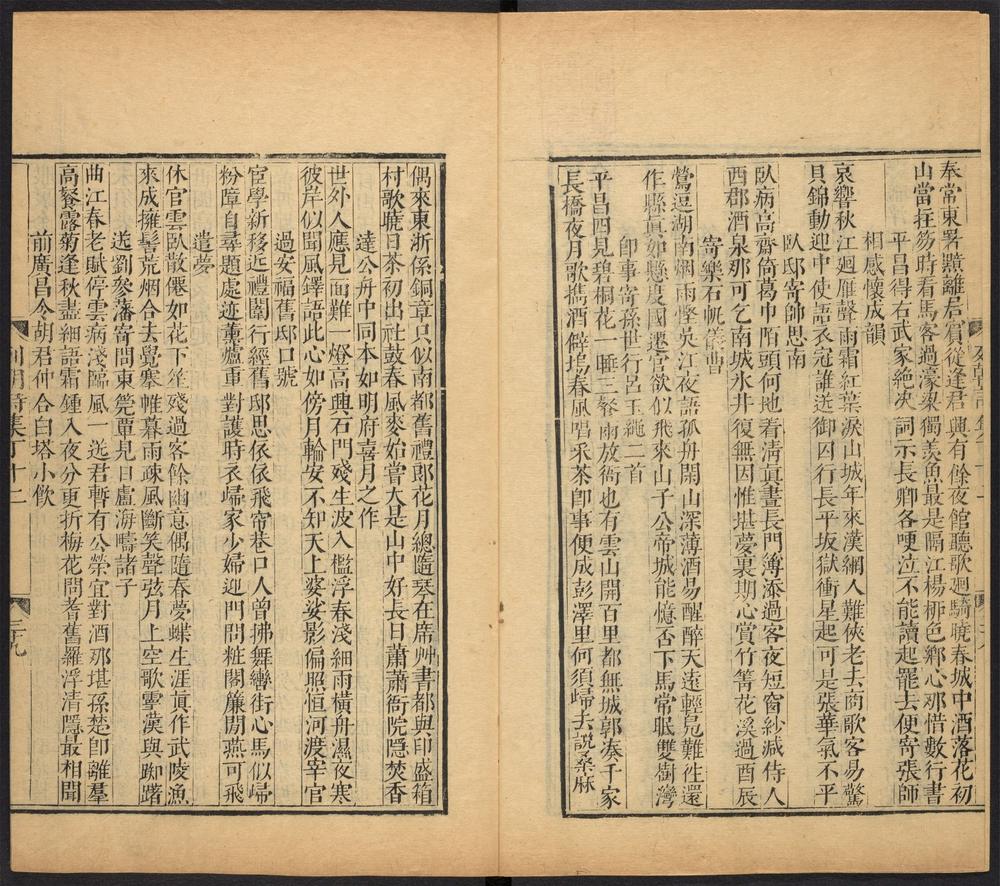 奉常東署黯離居賓從逢君興有餘夜館聽歌廻騎曉春城中酒落花初
山當拄笏時看馬客過濠梁獨羡魚最是隔江楊栁色鄕心那惜數行書
平昌得右武家絶決詞示長卿各哽泣不能讀起罷去便寄張師
相感懷成韻
哀響秋江廻雁聲雨霜紅葉淚山城年來漢網人難俠老去商歌客易驚
貝錦動迎中使語衣冠誰送御囚行長平坂獄衝星起可是張華氣不平
臥邸寄帥思南
臥病高齋倚葛巾陌頭何地着淸眞晝長門簿添過客夜短窗紗減侍人
酉郡酒泉那可乞南城氷井復無因惟堪夢裏期心賞竹箐花溪過酉辰
寄樂石帆儀曹
鶯逗湖南烟雨慳吳江夜語孤舟閑山深薄酒易醒醉天遠輕鳧難徃還
作縣眞如縣度國遷官欲似飛來山子公帝城能憶否下馬常眠雙樹灣
卽事寄孫世行呂玉繩二首
平昌四見碧桐花一睡三餐兩放衙也有雲山開百里都無城郭湊千家
長橋夜月歌擕酒僻塢春風唱采茶卽事便成彭澤里何須歸去說桑麻
偶來東浙係銅章只似南都舊禮郎花月總隨琴在席艸書都與印盛箱
村歌曉日茶初出社鼓春風麥始嘗大是山中好長日蕭蕭衙院隱焚香
達公舟中同本如明府喜月之作
世外人應見面難一燈高興石門殘生波入檻浮春淺細雨橫舟濕夜寒
彼岸似聞風鐸語此心如傍月輪安不知天上婆娑影偏照恒河渡宰官
過安福舊邸口號
宦學新移近禮闈行經舊邸思依依飛帘巷口人曾拂舞轡街心馬似歸
粉障自尋題處迹薰爐重對護時衣歸家少婦迎門問粧閣簾開燕可飛
遣夢
休官雲臥散僊如花下笙殘過客餘幽意偶隨春夢蝶生涯眞作武陵漁
來成擁髻荒烟合去覺搴帷暮雨疎風斷笑聲弦月上空歌霽漢與踟躇
送劉參藩寄問東筦覃見日盧海疇諸子
曲江春老賦停雲病淺臨風一送君暫有公榮宜對酒那堪孫楚卽離羣
高餐露菊逢秋盡細語霜鍾入夜分更折梅花問耆舊羅浮淸隱最相聞
前廣昌令胡君仲合白塔小飮
列朝詩集丁十二
三九